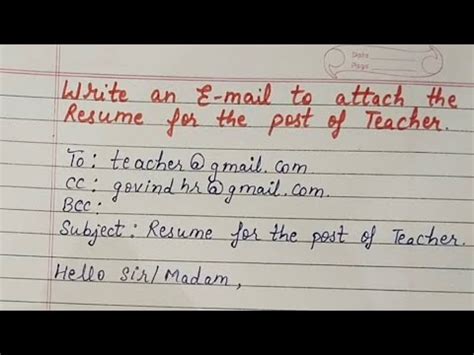 Write an E-mail to attach the
Resume for the post of Teacher.
To: teacher@gmail.com
CC: govindhr@gmail.com.
BCC:
Subject: Resume for the post of Teacher.
Hello Sir/Madam,